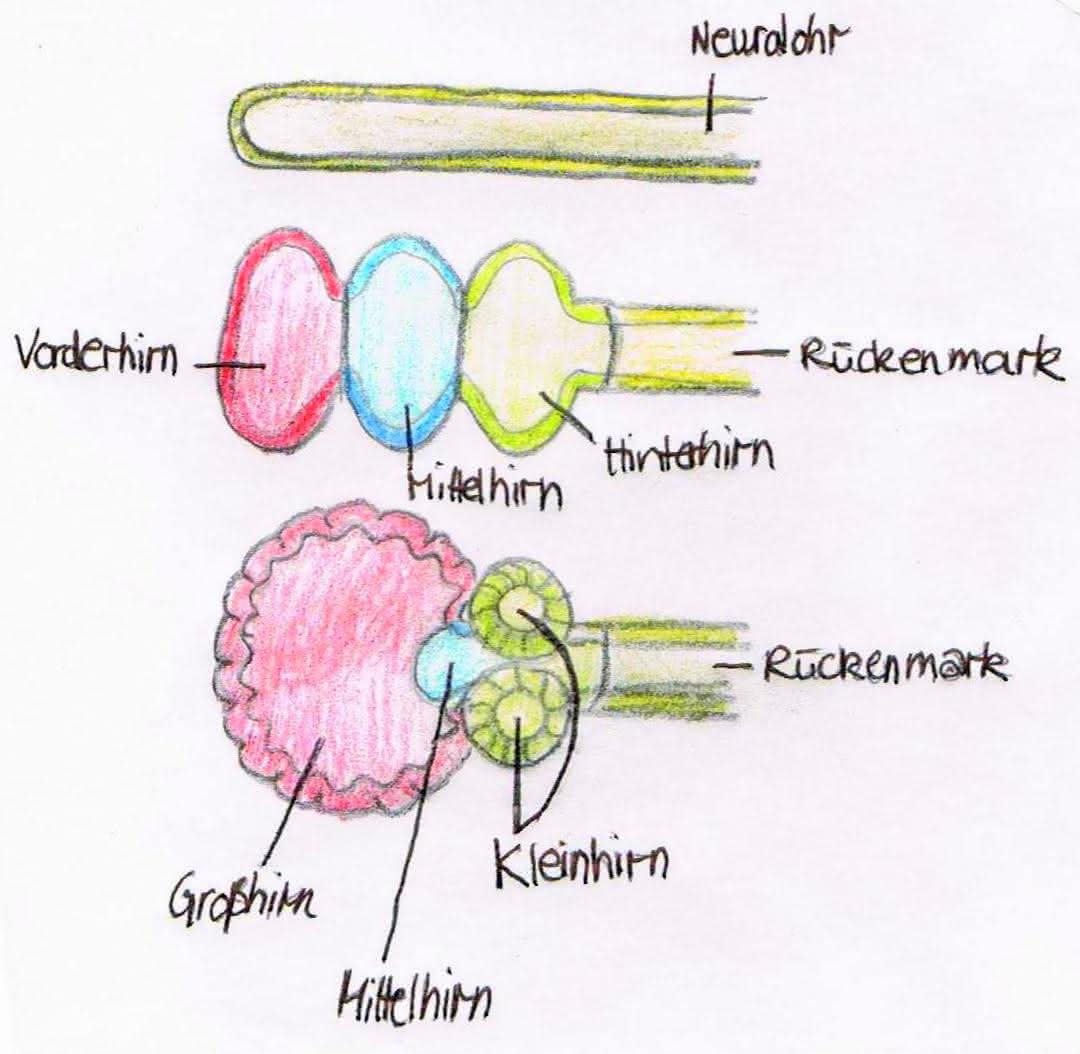 Neuralohr
Vorderhirn
Rückenmark
Hinterhirn
Mittelhirn
Rückenmark
Kleinhirn
Großhirn
Mittelhirn